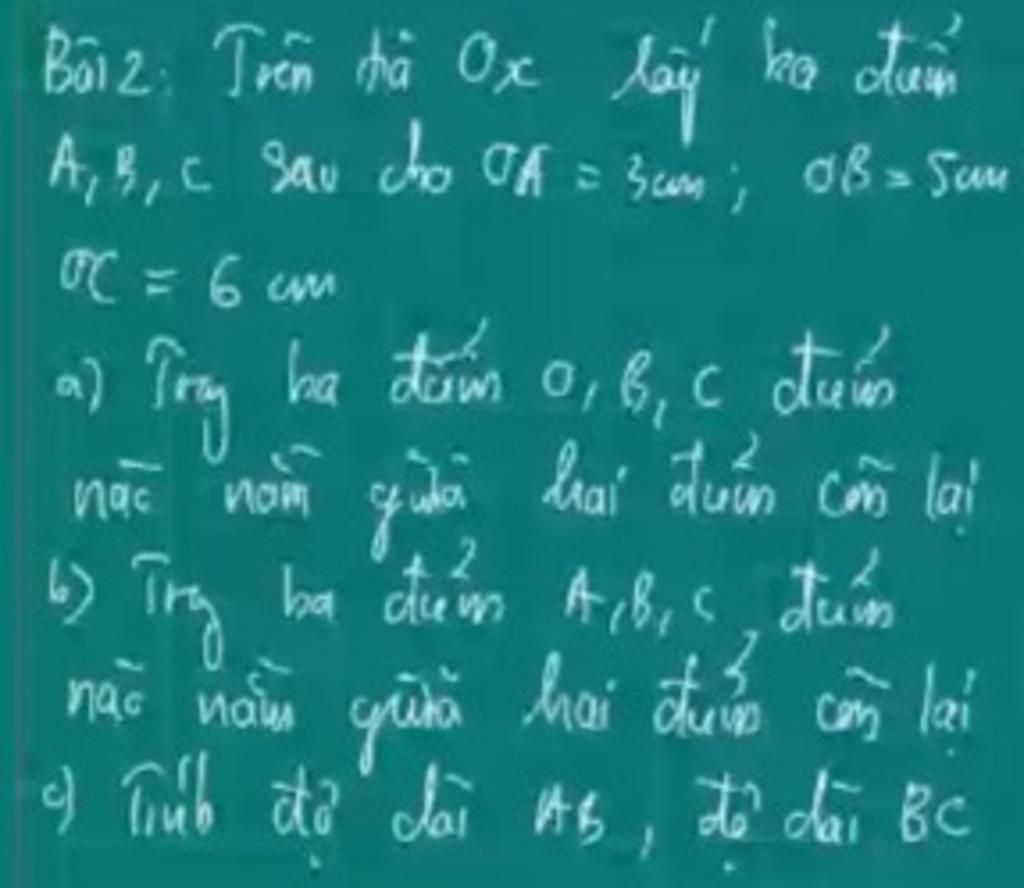 Bài 2: Trên tia Ox lấy ba điểm
A, B, C sau cho OA = 3cm; OB = 5cm
OC = 6 cm
a) Trong ba điểm O, B, C điểm
nào nằm giữa hai điểm còn lại
b) Trg ba điểm A, B, C điểm
nào nằm giữa hai điểm còn lại
c) Tính độ dài AB, độ dài BC